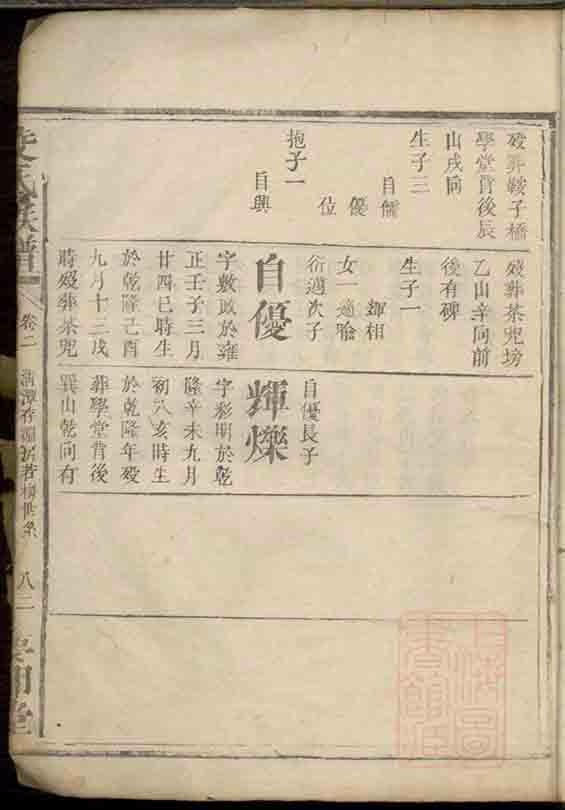 殁葬鞍子橋
學堂背後辰
山戌向
生子三
自儒
優
位
抱子一
自興
殁葬茶兜塝
乙山辛向前
後有碑
生子一
輝相
女一適喻
衍邁次子
自優
字敷政於雍
正壬子三月
廿四巳時生
於乾隆己酉
九月十三戌
時殁葬茶兜
自優長子
輝爍
字彩明於乾
隆辛未九月
初八亥時生
於乾隆年殁
葬學堂背後
巽山乾向有
氏族譜
卷二
世系
八二
上海圖
書館藏